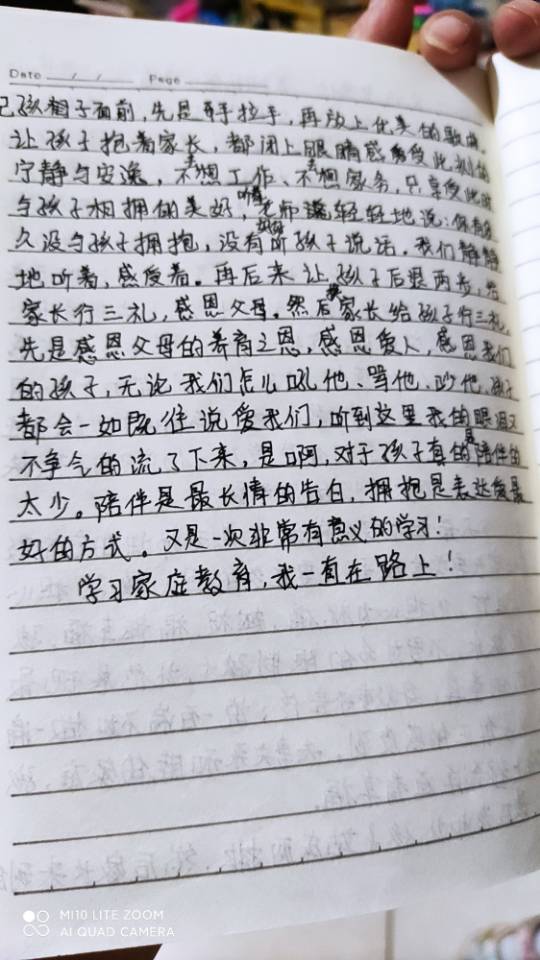 Date / / Page
己孩子面前,先是手拉手,再放上优美的歌曲。
让孩子抱着家长,都闭上眼睛感受此刻的
宁静与安逸,不去想工作、不去想家务,只享受此时
与孩子相拥的美好,听着老师轻轻地说:你有多
久没与孩子拥抱,没有好好听孩子说话。我们静静
地听着,感受着。再后来让孩子后退两步,给
家长行三礼,感恩父母。然后家长给孩子行三礼,
先是感恩父母的养育之恩,感恩爱人,感恩我们
的孩子,无论我们怎么吼他、骂他、吵他、孩子
都会一如既往说爱我们,听到这里我的眼泪又
不争气的流了下来,是啊,对于孩子真的是陪伴的
太少。陪伴是最长情的告白,拥抱是表达爱最
好的方式。又是一次非常有意义的学习!
学习家庭教育,我一直在路上!
MI10 LITE ZOOM
AI QUAD CAMERA